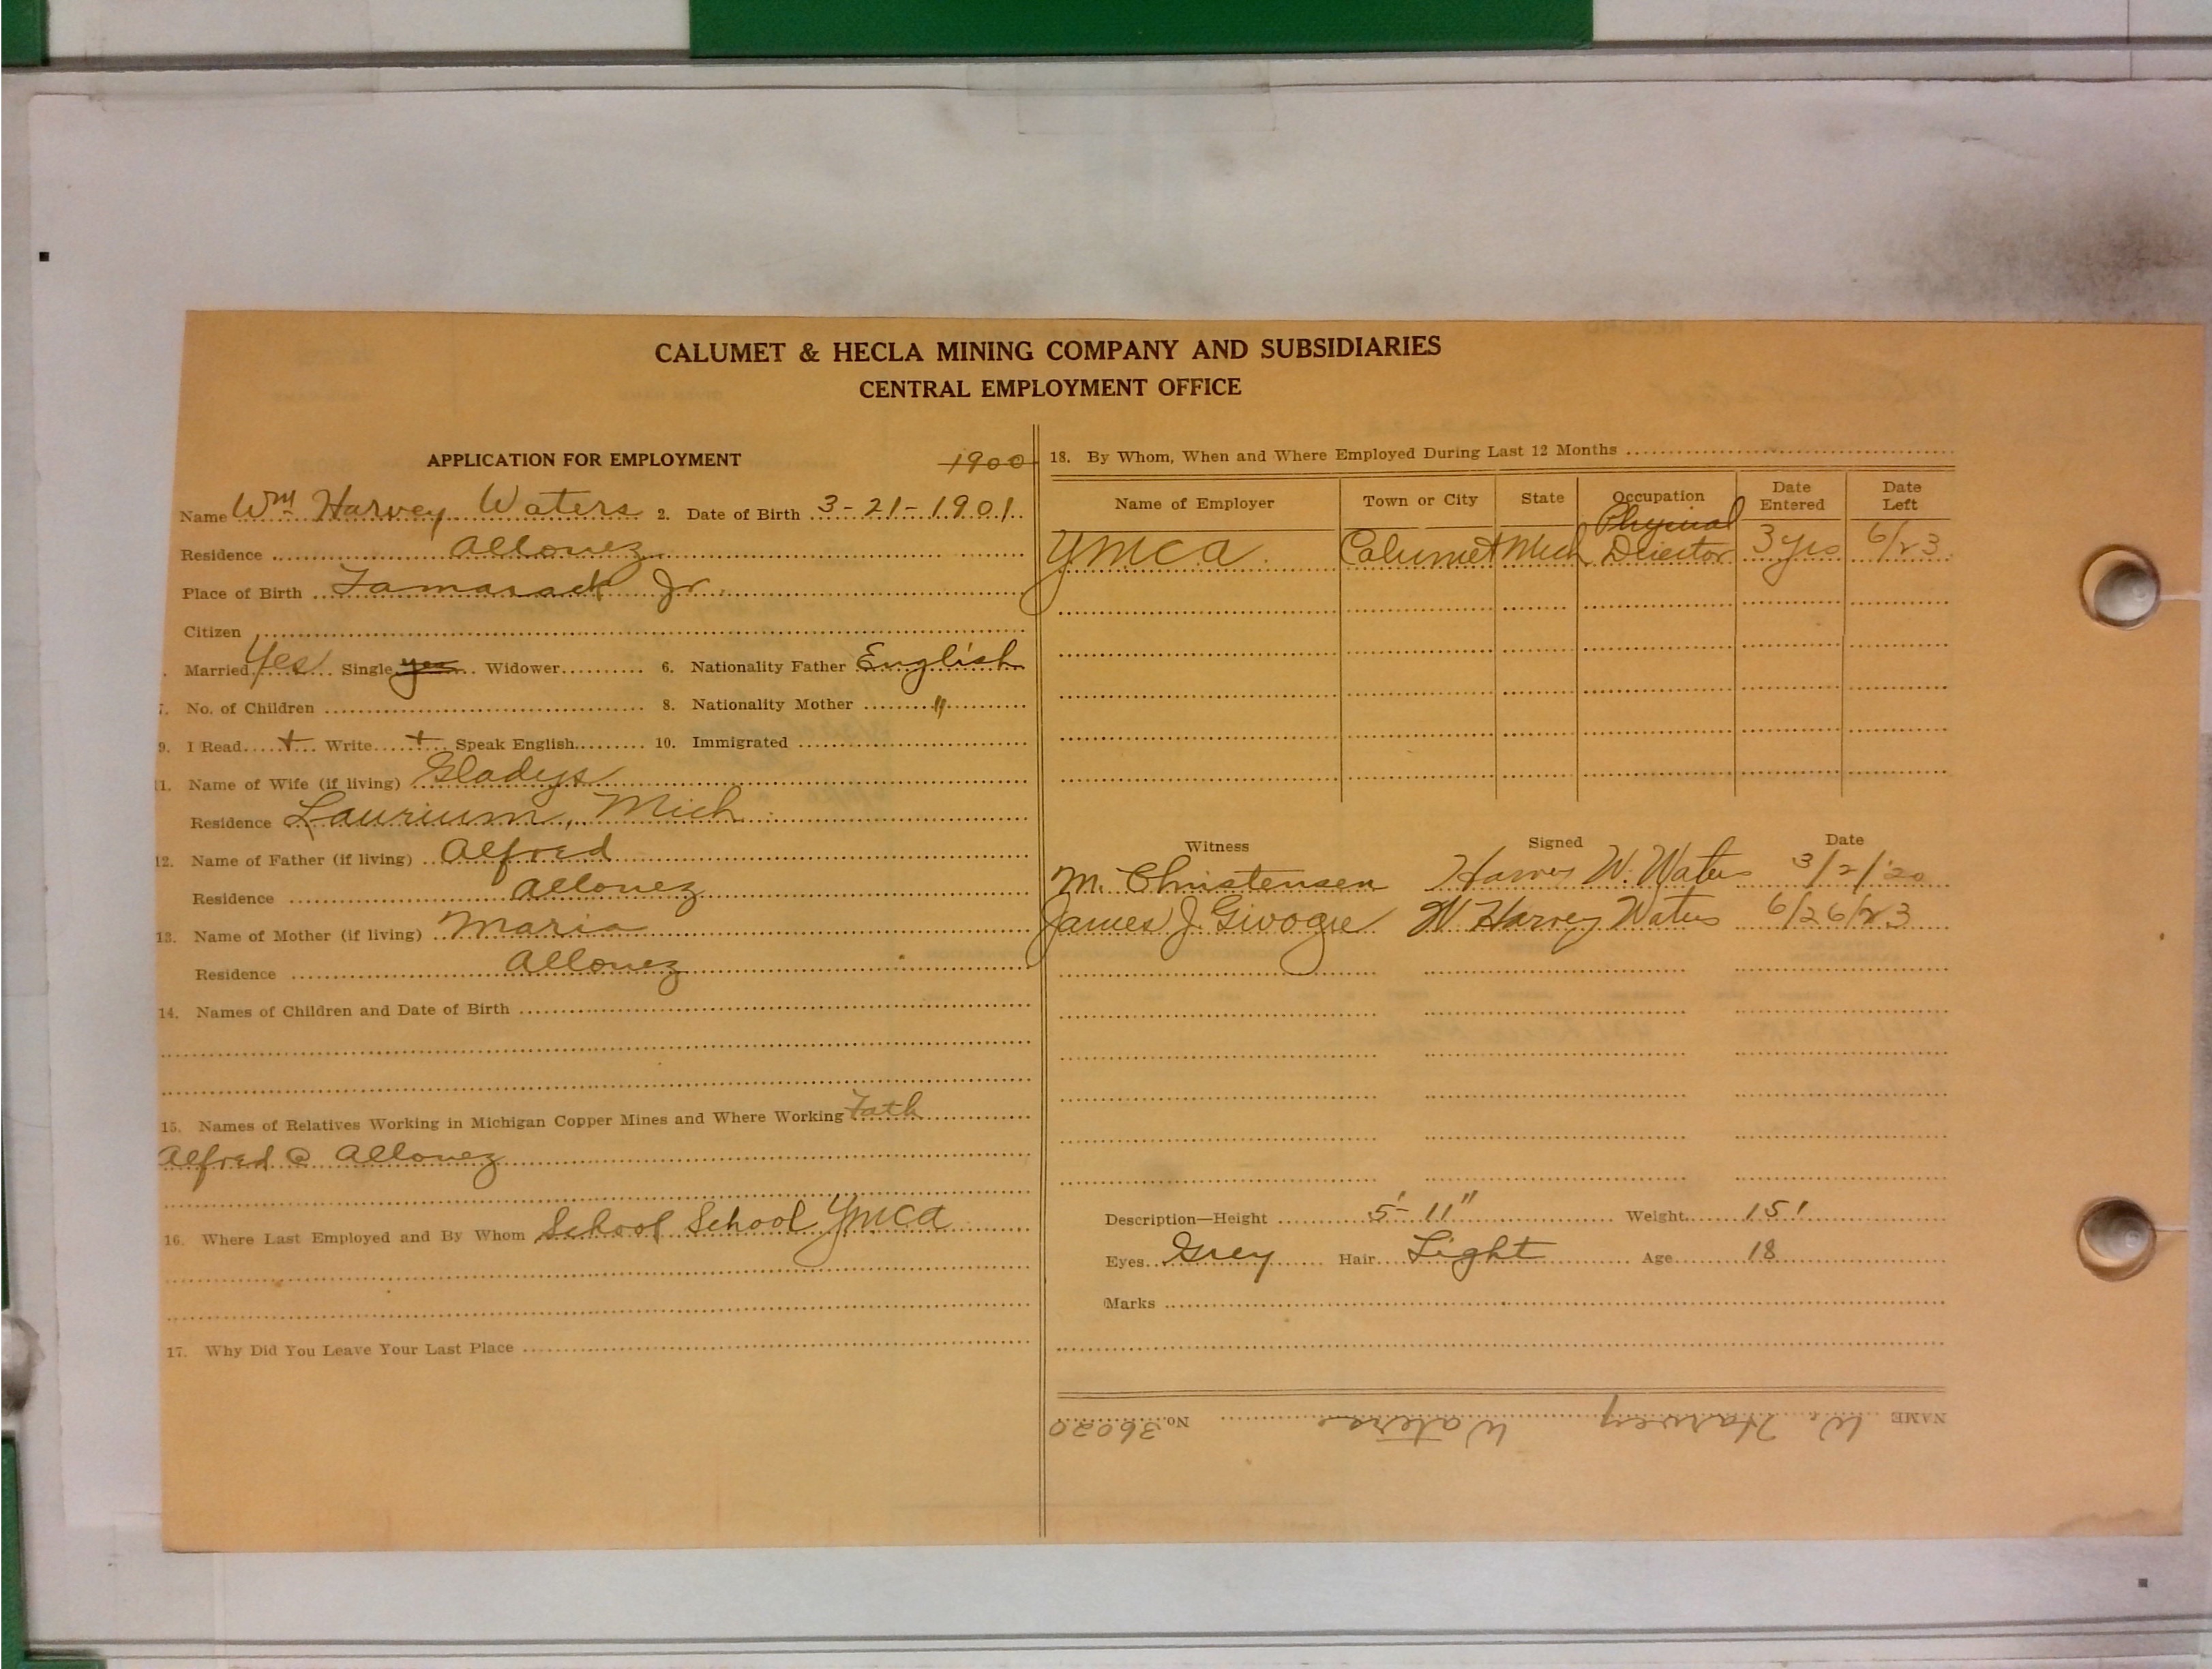 CALUMET & HECLA MINING COMPANY AND SUBSIDIARIES
CENTRAL EMPLOYMENT OFFICE
APPLICATION FOR EMPLOYMENT
1900
Name Wm Harvey Waters 2. Date of Birth 3-21-1901
Residence Allouez
Place of Birth Tamarack Jr.
Citizen
Married Yes Single yes Widower 6. Nationality Father English
7. No. of Children 8. Nationality Mother "
9. I Read + Write + Speak English 10. Immigrated
11. Name of Wife (if living) Gladys
Residence Laurium, Mich
12. Name of Father (if living) Alfred
Residence Allouez
13. Name of Mother (if living) Maria
Residence Allouez
14. Names of Children and Date of Birth
15. Names of Relatives Working in Michigan Copper Mines and Where Working Fath
Alfred @ Allouez
16. Where Last Employed and By Whom School School YMCA
17. Why Did You Leave Your Last Place
18. By Whom, When and Where Employed During Last 12 Months
Name of Employer Town or City State Occupation Date Entered Date Left
YMCA Calumet Mich Physical Director 3 yrs 6/23
Witness Signed Date
M. Christensen Harvey W. Waters 3/2/'20
James J. W Harvey Waters 6/26/23
Description—Height 5'-11" Weight 151
Eyes Grey Hair Light Age 18
Marks
NAME W. Harvey Waters No. 36020